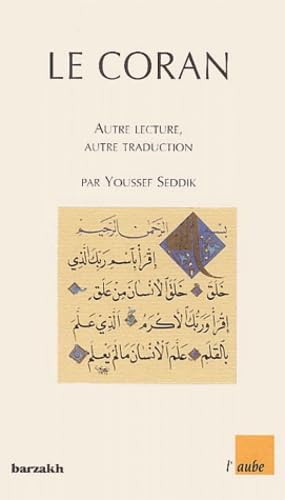 LE CORAN
AUTRE LECTURE,
AUTRE TRADUCTION
PAR YOUSSEF SEDDIK
بسم الله الرحمن الرحيم
اقرأ باسم ربك الذي
خلق خلق الإنسان من علق
اقرأ وربك الأكرم الذي علم
بالقلم علم الإنسان ما لم يعلم
barzakh
l'aube